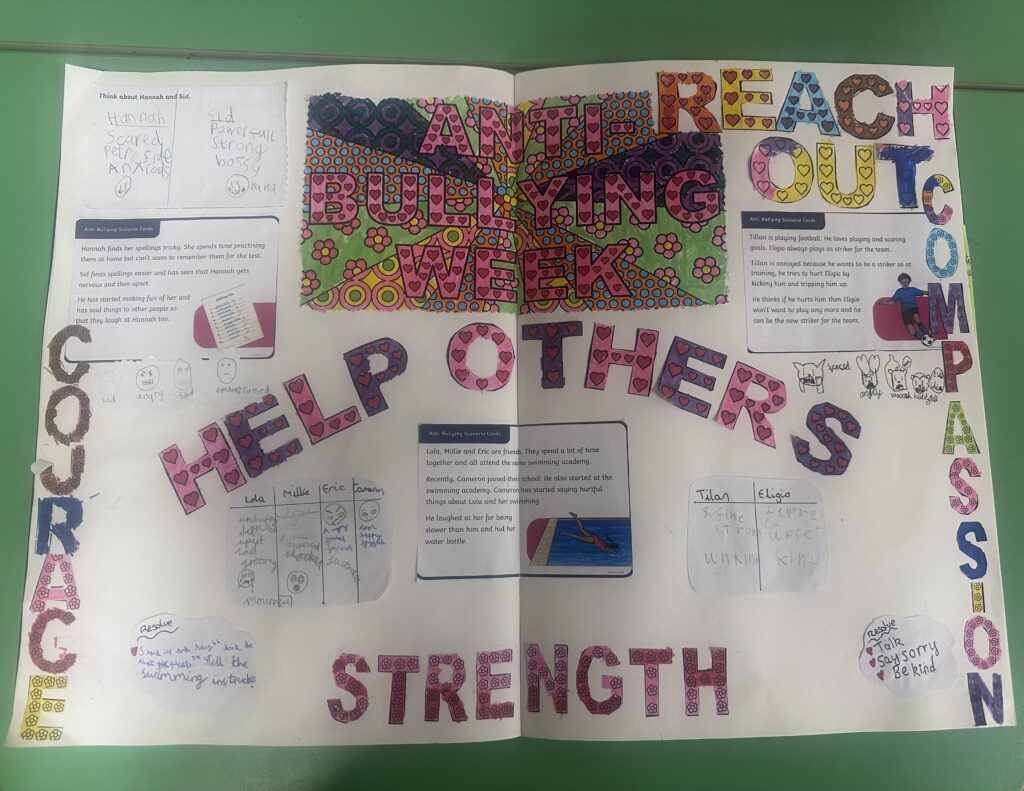 Think about Hannah and Sid.
Hannah
Scared
Anxious
Sid
Powerfull
Strong
bossy
ANTI-
BULLYING
WEEK
REACH
OUT
COMPASSION
Anti-Bullying Scenario Cards
Hannah finds her spellings tricky. She spends time practising
them at home but can't seem to remember them for the test.
Sid finds spellings easier and has seen that Hannah gets
nervous and then upset.
He has started making fun of her and
has said things to other people so
that they laugh at Hannah too.
sad
angry
Sad
embarrassed
Anti-Bullying Scenario Cards
Tillan is playing football. He loves playing and scoring
goals. Eligio always plays as striker for the team.
Tillan is annoyed because he wants to be a striker so at
training, he tries to hurt Eligio by
kicking him and tripping him up.
He thinks if he hurts him then Eligio
won't want to play any more and he
can be the new striker for the team.
angry
COURAGE
HELP OTHERS
Anti-Bullying Scenario Cards
Lola, Millie and Eric are friends. They spend a lot of time
together and all attend the same swimming academy.
Recently, Cameron joined their school. He also started at the
swimming academy. Cameron has started saying hurtful
things about Lola and her swimming.
He laughed at her for being
slower than him and hid her
water bottle.
Lola Millie Eric Cameron
unhappy
upset
sad
Tilan Eligio
strong upset
unkind kind
Resolve
tell the
swimming
Resolve
Talk
Say sorry
Be kind
STRENGTH